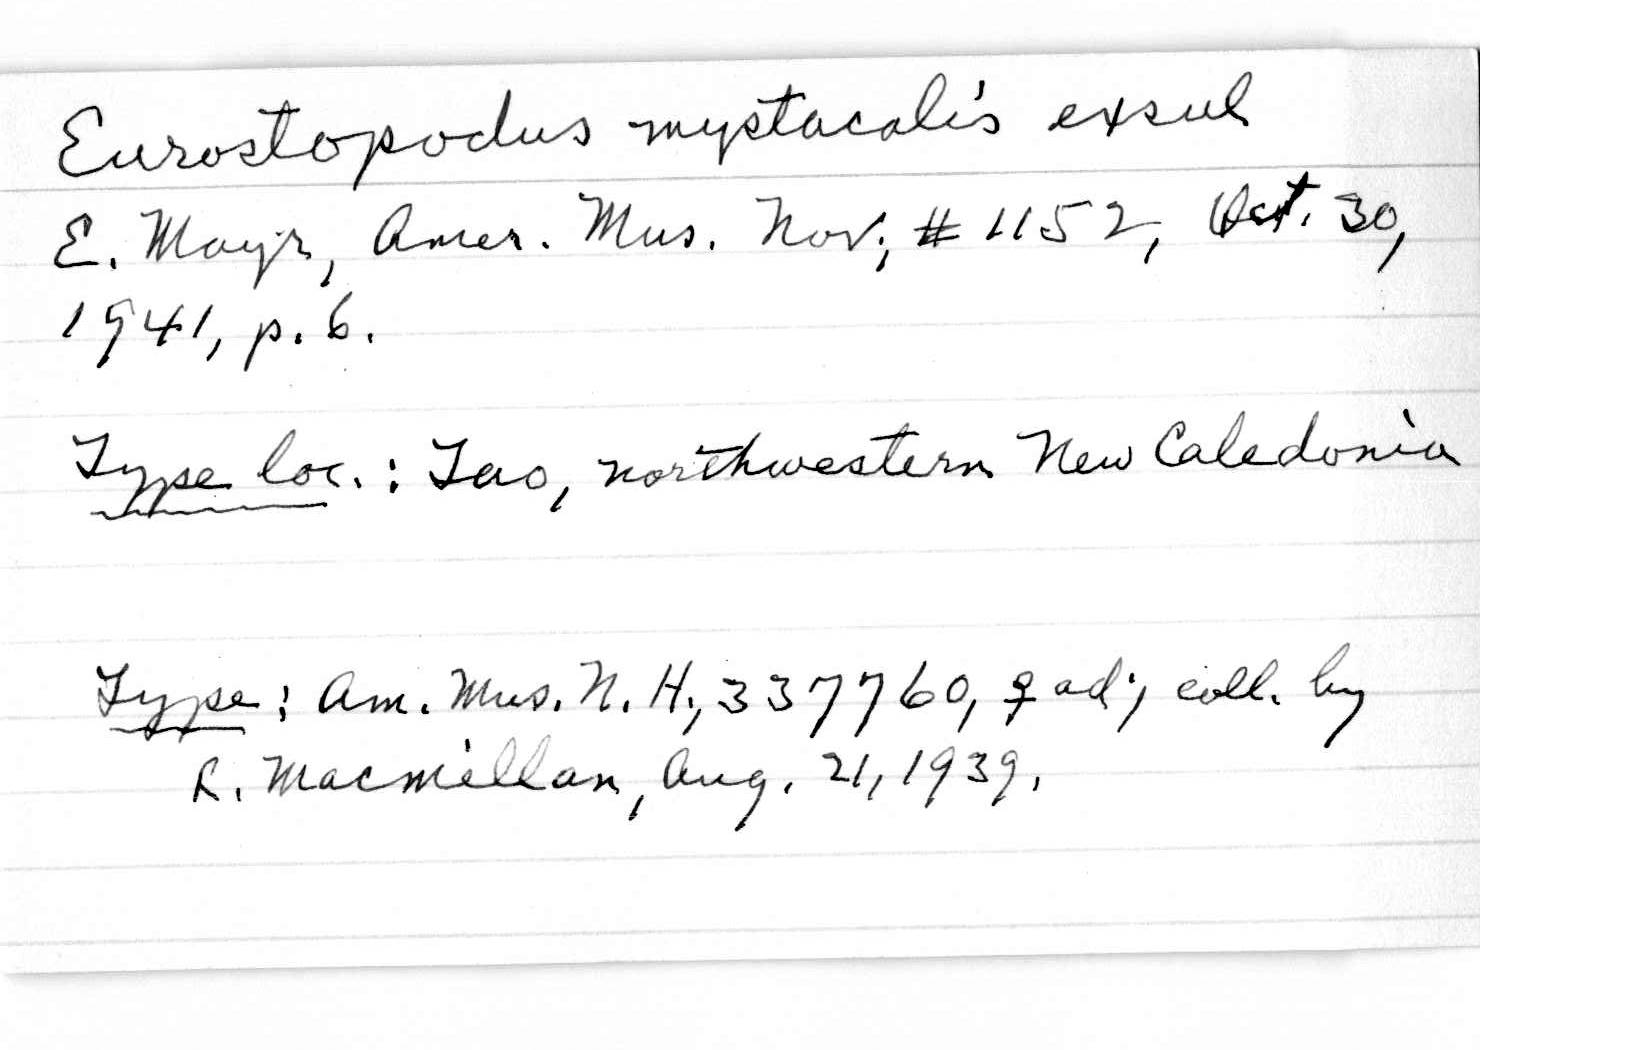 Eurostopodus mystacalis exsul
E. Mayr, Amer. Mus. Nov., # 1152, Oct. 30,
1941, p. 6.
Type loc. : Tao, northwestern New Caledonia
Type : Am. Mus. N. H., 337760, ♀ ad., coll. by
L. Macmillan, Aug. 21, 1939.